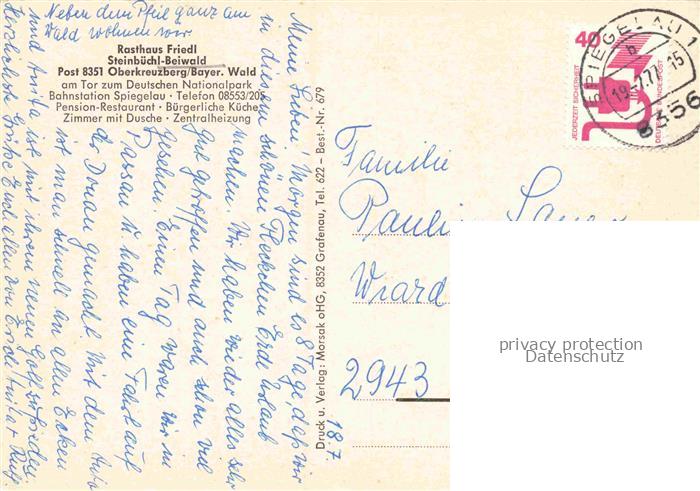 Neben dem Pfeil ganz am
Wald wohnen wir
Rasthaus Friedl
Steinbüchl-Beiwald
Post 8351 Oberkreuzberg/Bayer. Wald
am Tor zum Deutschen Nationalpark
Bahnstation Spiegelau · Telefon 08553/205
Pension-Restaurant · Bürgerliche Küche
Zimmer mit Dusche · Zentralheizung
Meine Lieben. Morgen sind es 8 Tage, daß wir
in diesem schönen Fleckchen Erde Urlaub
machen. Wir haben wieder alles sehr
gut getroffen und auch schon viel
gesehen. Einen Tag waren wir in
Passau u. haben eine Fahrt auf
der Donau gemacht. Mit dem Auto
ist man schnell an allen Ecken
und Anita ist mit ihrem neuen Golf zufrieden.
Herzlichste Grüße Euch allen von Anita + Ruth
18.7.
Druck u. Verlag: Morsak oHG, 8352 Grafenau, Tel. 622 – Best.-Nr. 679
Familie
Paul
Wiard
2943
40
JEDERZEIT SICHERHEIT
DEUTSCHE BUNDESPOST
SPIEGELAU 1
b
19.-7.77-15
8356
privacy protection
Datenschutz